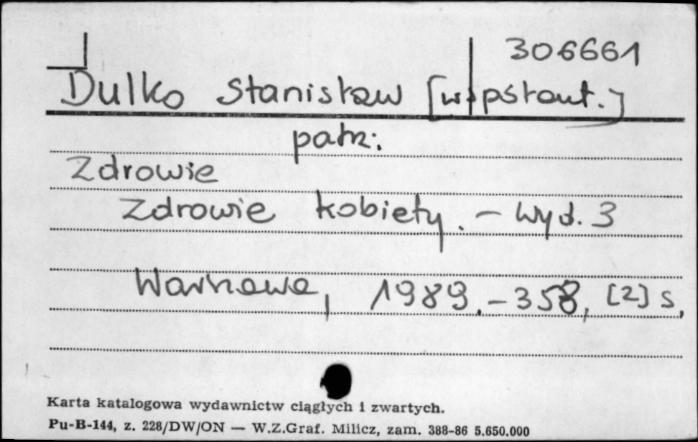 306661
Dulko Stanisław [współaut.]
patrz:
Zdrowie
Zdrowie kobiety. – Wyd. 3
Warszawa, 1989. – 358, [2] s.
Karta katalogowa wydawnictw ciągłych i zwartych.
Pu-B-144, z. 228/DW/ON — W.Z.Graf. Milicz, zam. 388-86 5.650.000